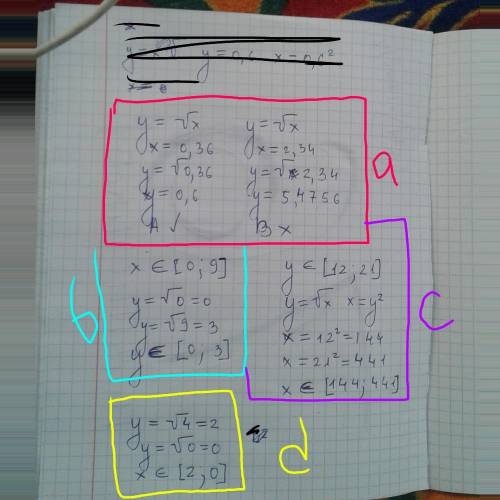 y = 0,6
y = √x
x = 0,36
y = √0,36
y = 0,6
A ✓
y = √x
x = 2,34
y = √2,34
y = 5,4756
B x
a
x ∈ [0 ; 9]
y = √0 = 0
y = √9 = 3
y ∈ [0 ; 3]
b
y ∈ [12 ; 21]
y = √x x = y²
x = 12² = 144
x = 21² = 441
x ∈ [144 ; 441]
c
y = √4 = 2
y = √0 = 0
x ∈ [2 ; 0]
d